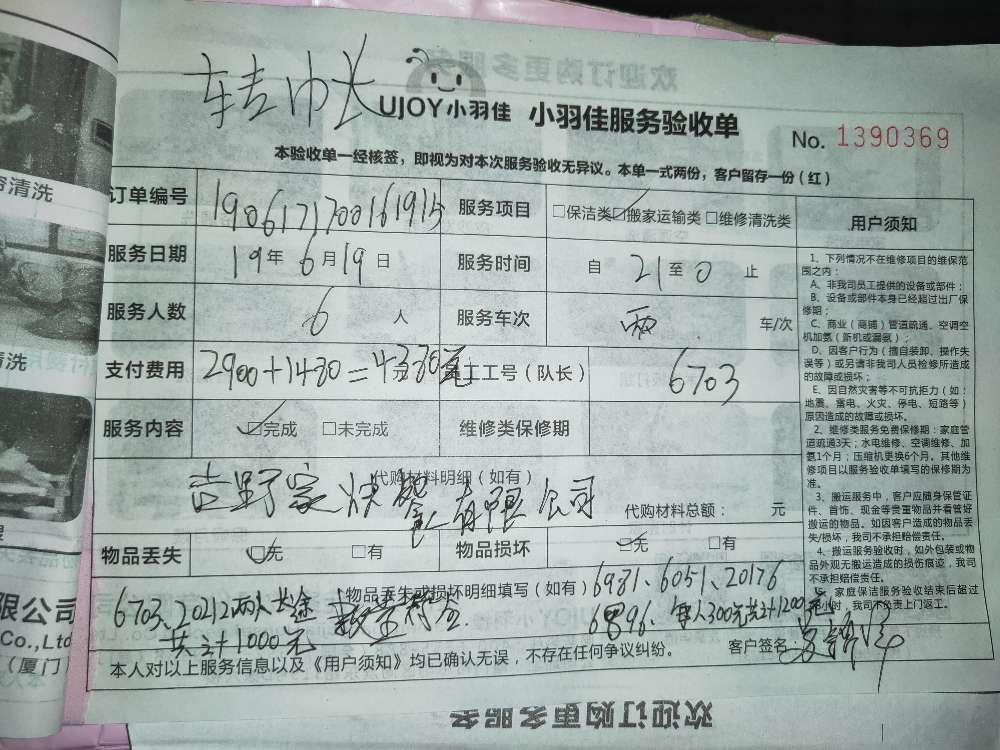 欢迎订购更多服务
转巾长
UJOY小羽佳 小羽佳服务验收单
No. 1390369
本验收单一经核签，即视为对本次服务验收无异议。本单一式两份，客户留存一份（红）
清洗
清洗
限公司
Co.,Ltd
（厦门）
订单编号 190617170016191
服务项目 □保洁类 □搬家运输类 □维修清洗类
服务日期 19年6月19日
服务时间 自 21 至 0 止
服务人数 6 人
服务车次 两 车/次
支付费用 2900+1480=4380元
工工号（队长） 6703
服务内容 □完成 □未完成
维修类保修期
代购材料明细（如有）
吉野家快餐有限公司
代购材料总额： 元
物品丢失 □无 □有
物品损坏 □无 □有
物品丢失或损坏明细填写（如有）
6931、6051、20176
6703、20212两人长途
共计1000元
6896、每人300元共计1200元
本人对以上服务信息以及《用户须知》均已确认无误，不存在任何争议纠纷。
客户签名
用户须知
1、下列情况不在维修项目的维保范
围之内：
A、非我司员工提供的设备或部件；
B、设备或部件本身已经超过出厂保
修期；
C、商业（商铺）管道疏通、空调空
机加氨（新机或漏氨）；
D、因客户行为（擅自装卸、操作失
误等）或另请非我司人员检修所造成
的故障或损坏；
E、因自然灾害等不可抗拒力（如：
地震、雷电、火灾、停电、短路等）
原因造成的故障或损坏。
2、维修类服务免费保修期：家庭管
道疏通3天；水电维修、空调维修、加
氨1个月；压缩机更换6个月。其他维
修项目以服务验收单填写的保修期为
准。
3、搬运服务中，客户应随身保管证
件、首饰、现金等贵重物品并看管好
搬运的物品。如因客户造成的物品丢
失/损坏，我司不承担赔偿责任。
4、搬运服务验收时，如外包装或物
品外观无搬运造成的损伤痕迹，我司
不承担赔偿责任。
家庭保洁服务验收结束后超过
小时，我司不负责上门返工。
欢迎订购更多服务